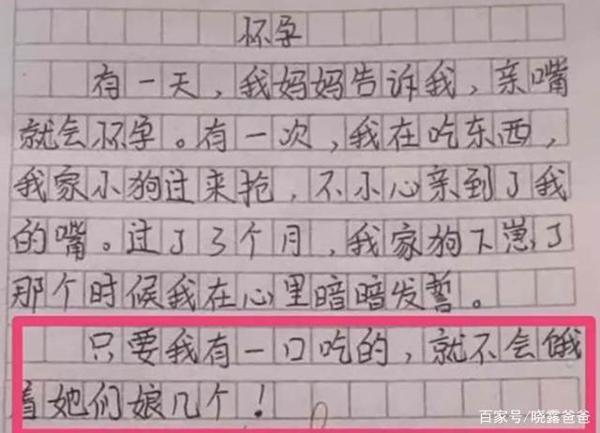 怀孕
有一天，我妈妈告诉我，亲嘴
就会怀孕。有一次，我在吃东西，
我家小狗过来抢，不小心亲到了我
的嘴。过了3个月，我家狗下崽了
那个时候我在心里暗暗发誓。
只要我有一口吃的，就不会饿
着她们娘几个！
百家号/晓露爸爸